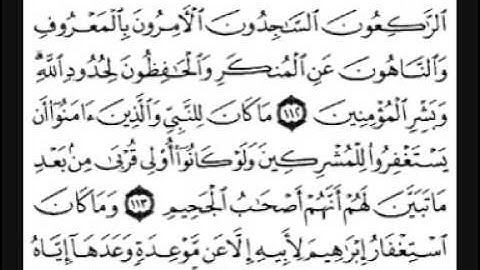 ٱلرَّٰكِعُونَ ٱلسَّٰجِدُونَ ٱلْأَمِرُونَ بِٱلْمَعْرُوفِ
وَٱلنَّاهُونَ عَنِ ٱلْمُنكَرِ وَٱلْحَٰفِظُونَ لِحُدُودِ ٱللَّهِۗ
وَبَشِّرِ ٱلْمُؤْمِنِينَ ١١٢ مَا كَانَ لِلنَّبِيِّ وَٱلَّذِينَ ءَامَنُوٓا۟ أَن
يَسْتَغْفِرُوا۟ لِلْمُشْرِكِينَ وَلَوْ كَانُوٓا۟ أُو۟لِى قُرْبَىٰ مِنۢ بَعْدِ
مَا تَبَيَّنَ لَهُمْ أَنَّهُمْ أَصْحَٰبُ ٱلْجَحِيمِ ١١٣ وَمَا كَانَ
ٱسْتِغْفَارُ إِبْرَٰهِيمَ لِأَبِيهِ إِلَّا عَن مَّوْعِدَةٍ وَعَدَهَآ إِيَّاهُ